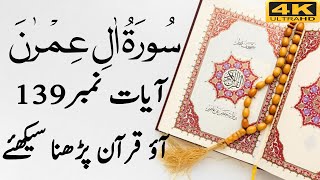 سُورَةُ اٰلِ عِمْرٰنَ
آیات نمبر139
آؤ قرآن پڑھنا سیکھئے
4K
ULTRAHD